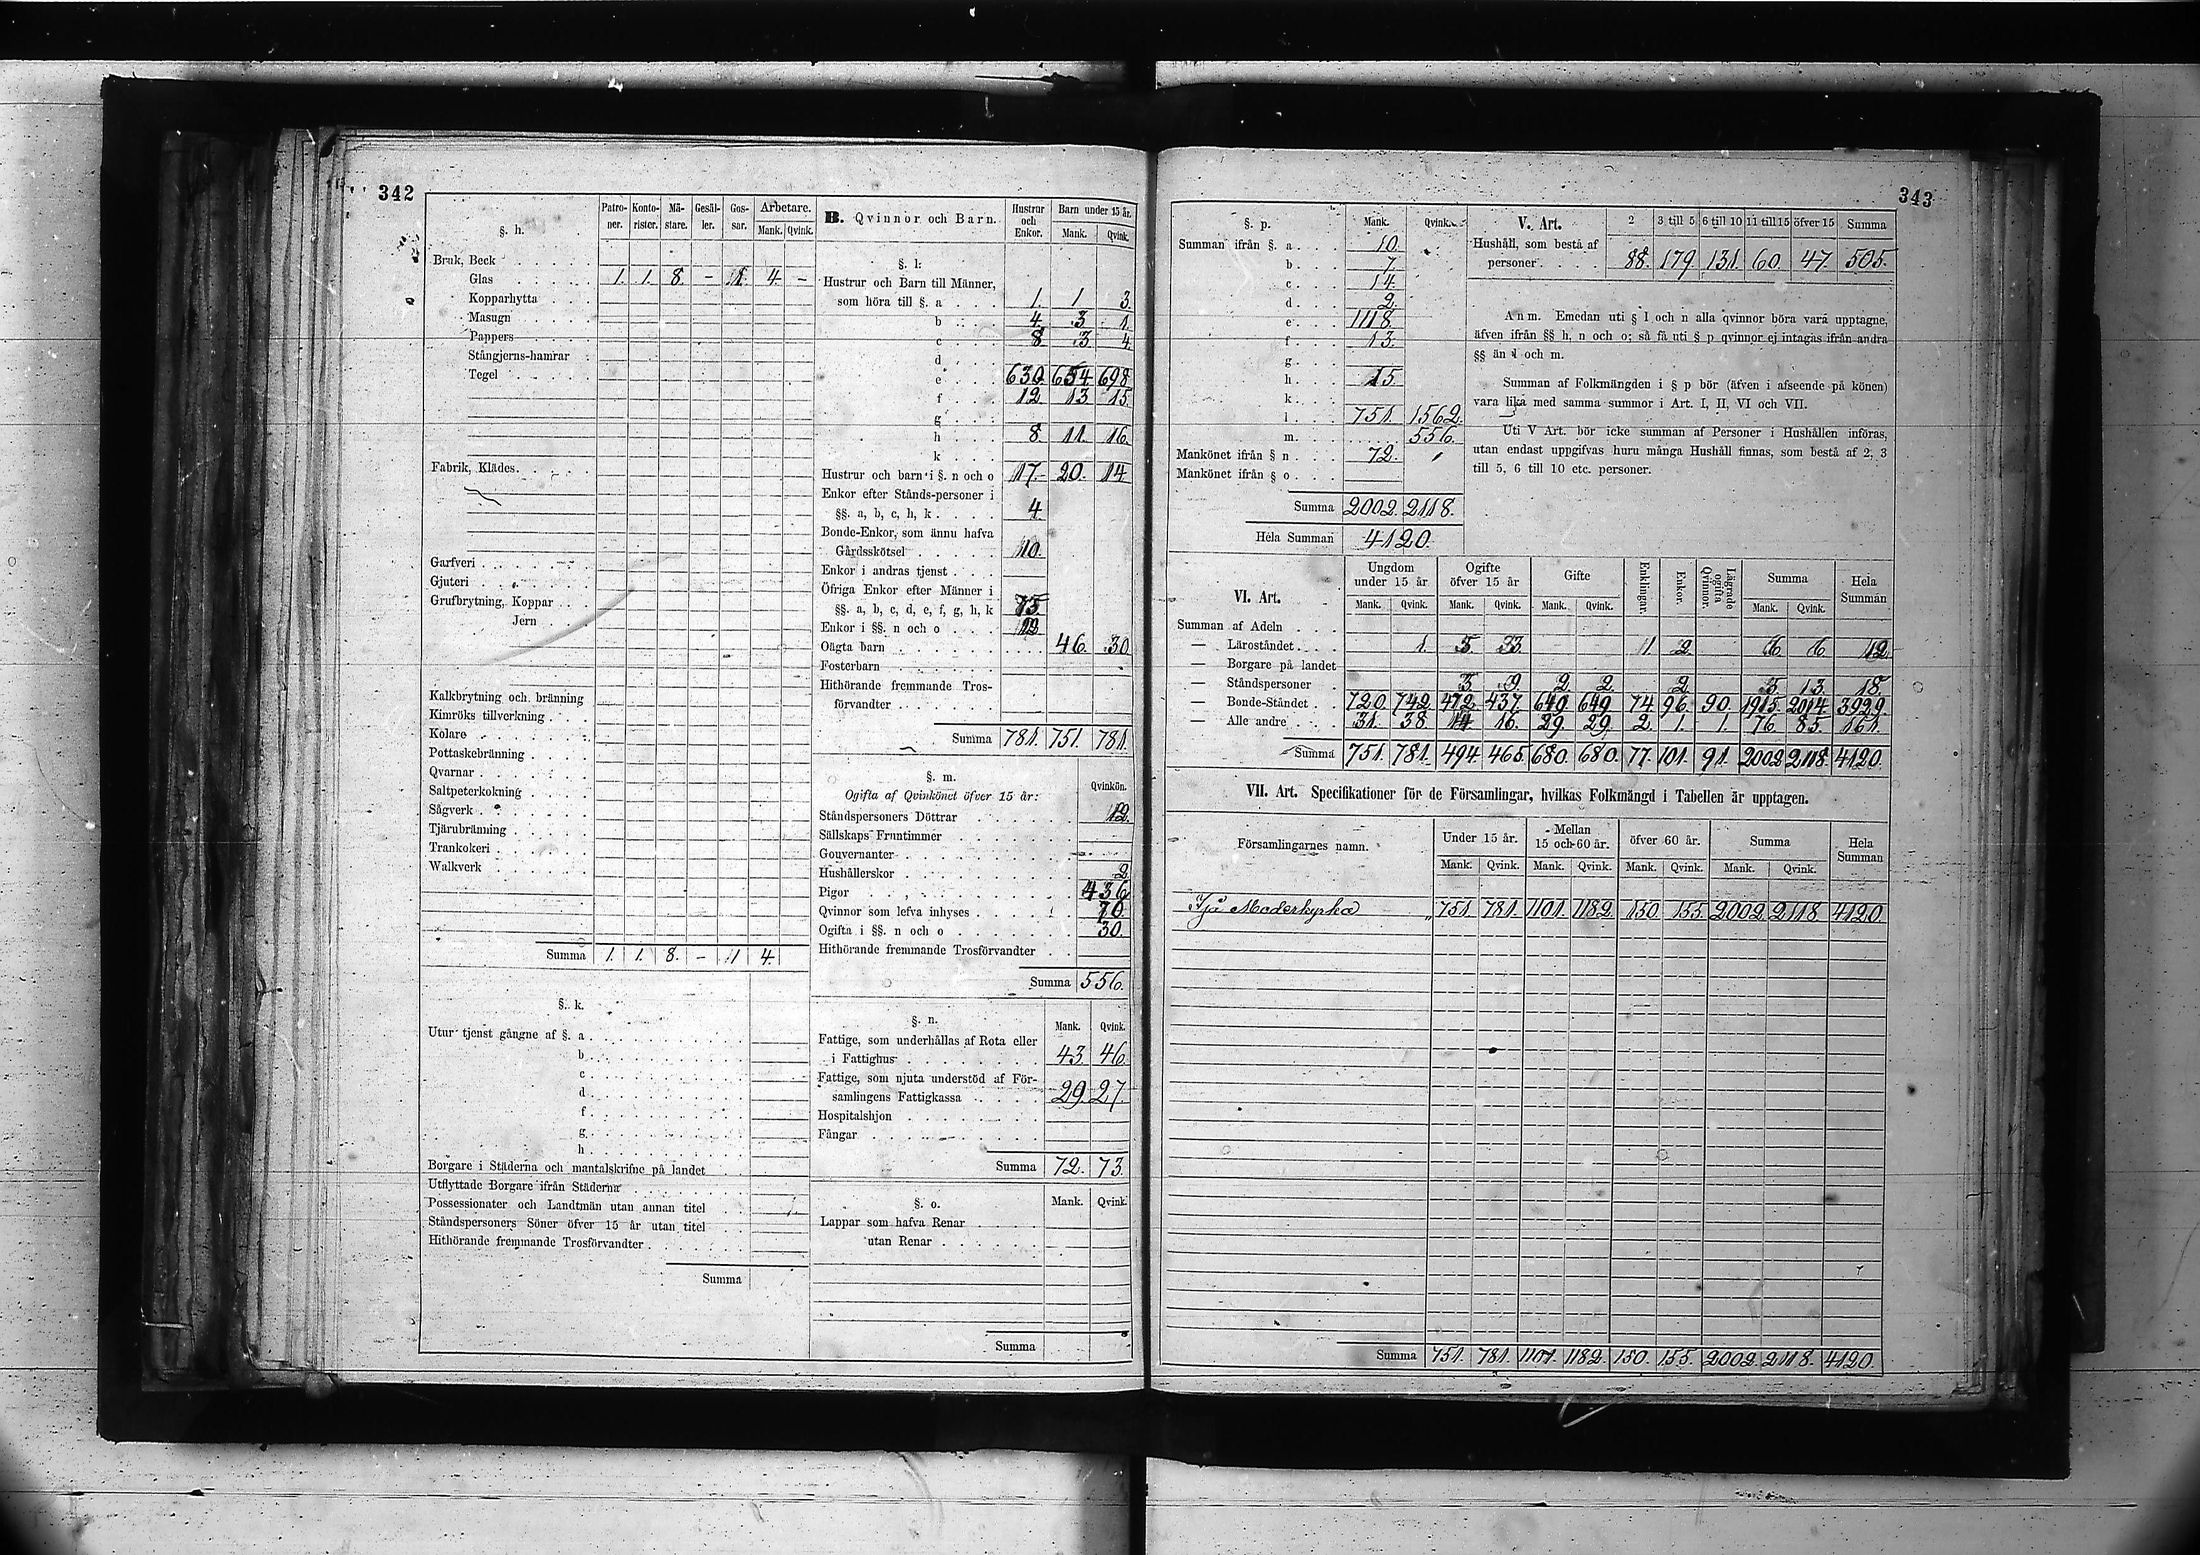 342
§. h. Patro- ner. Konto- rister. Mä- stare. Gesäl- ler. Gos- sar. Arbetare. Mank. Qvink.
Bruk, Beck
Glas 1. 1. 8. – 1. 4. –
Kopparhytta
Masugn
Pappers
Stångjerns-hamrar
Tegel
Fabrik, Klädes
Garfveri
Gjuteri
Grufbrytning, Koppar
Jern
Kalkbrytning och bränning
Kimröks tillverkning
Kolare
Pottaskebränning
Qvarnar
Saltpeterkokning
Sågverk
Tjärubränning
Trankokeri
Walkverk
Summa 1. 1. 8. – 1 4.
§. k.
Utur tjenst gångne af §. a
b
c
d
f
g
h
Borgare i Städerna och mantalskrifne på landet
Utflyttade Borgare ifrån Städerna
Possessionater och Landtmän utan annan titel
Ståndspersoners Söner öfver 15 år utan titel
Hithörande fremmande Trosförvandter
Summa
B. Qvinnor och Barn. Hustrur och Enkor. Barn under 15 år. Mank. Qvink.
§. l:
Hustrur och Barn till Männer,
som höra till §. a 1. 1 3.
b 4. 3 1.
c 8. 3 4.
d
e 630. 654 698
f 12. 13. 15.
g
h 8. 11. 16.
k
Hustrur och barn i §. n och o 17. 20. 14.
Enkor efter Stånds-personer i
§§. a, b, c, h, k 4.
Bonde-Enkor, som ännu hafva
Gårdsskötsel 10.
Enkor i andras tjenst
Öfriga Enkor efter Männer i
§§. a, b, c, d, e, f, g, h, k 75
Enkor i §§. n och o 12
Oägta barn 46. 30.
Fosterbarn
Hithörande fremmande Tros-
förvandter
Summa 781. 751. 781.
§. m.
Ogifta af Qvinkönet öfver 15 år: Qvinkön.
Ståndspersoners Döttrar 12.
Sällskaps Fruntimmer
Gouvernanter
Hushållerskor 2
Pigor 436
Qvinnor som lefva inhyses 70.
Ogifta i §§. n och o 30.
Hithörande fremmande Trosförvandter
Summa 556.
§. n. Mank. Qvink.
Fattige, som underhållas af Rota eller
i Fattighus 43. 46.
Fattige, som njuta understöd af För-
samlingens Fattigkassa 29. 27.
Hospitalshjon
Fångar
Summa 72. 73.
§. o. Mank. Qvink.
Lappar som hafva Renar
utan Renar
Summa
343
§. p. Mank. Qvink.
Summan ifrån §. a 10.
b 7.
c 14.
d 2.
e 1118.
f 13.
g
h 15.
k
l 751. 1562.
m 556.
Mankönet ifrån § n 72.
Mankönet ifrån § o
Summa 2002. 2118.
Hela Summan 4120.
V. Art. 2 3 till 5 6 till 10 11 till 15 öfver 15 Summa
Hushåll, som bestå af
personer 88. 179 131. 60. 47. 505.
Anm. Emedan uti § l och n alla qvinnor böra vara upptagne,
äfven ifrån §§ h, n och o; så få uti § p qvinnor ej intagas ifrån andra
§§ än l och m.
Summan af Folkmängden i § p bör (äfven i afseende på könen)
vara lika med samma summor i Art. I, II, VI och VII.
Uti V Art. bör icke summan af Personer i Hushållen införas,
utan endast uppgifvas huru många Hushåll finnas, som bestå af 2, 3
till 5, 6 till 10 etc. personer.
VI. Art. Ungdom under 15 år Ogifte öfver 15 år Gifte Enklingar. Enkor. Lägrade ogifta Qvinnor. Summa Hela Summan
Mank. Qvink. Mank. Qvink. Mank. Qvink. Mank. Qvink.
Summan af Adeln
— Läroståndet 1. 5. 3. 1 2. 6. 6. 12
— Borgare på landet
— Ståndspersoner 3. 9. 2. 2. 2. 5. 13. 18.
— Bonde-Ståndet 720. 742. 472. 437. 649. 649. 74 96. 90. 1915. 2014. 3929.
— Alle andre 31. 38. 14 16. 29. 29. 2. 1. 1. 76. 85. 161.
Summa 751. 781. 494. 465. 680. 680. 77. 101. 91. 2002. 2118. 4120.
VII. Art. Specifikationer för de Församlingar, hvilkas Folkmängd i Tabellen är upptagen.
Församlingarnes namn. Under 15 år. Mellan 15 och 60 år. öfver 60 år. Summa Hela Summan
Mank. Qvink. Mank. Qvink. Mank. Qvink. Mank. Qvink.
Ijå Moderkyrka 751. 781. 1101. 1182. 150. 155. 2002. 2118. 4120.
Summa 751. 781. 1101. 1182. 150. 155. 2002. 2118. 4120.